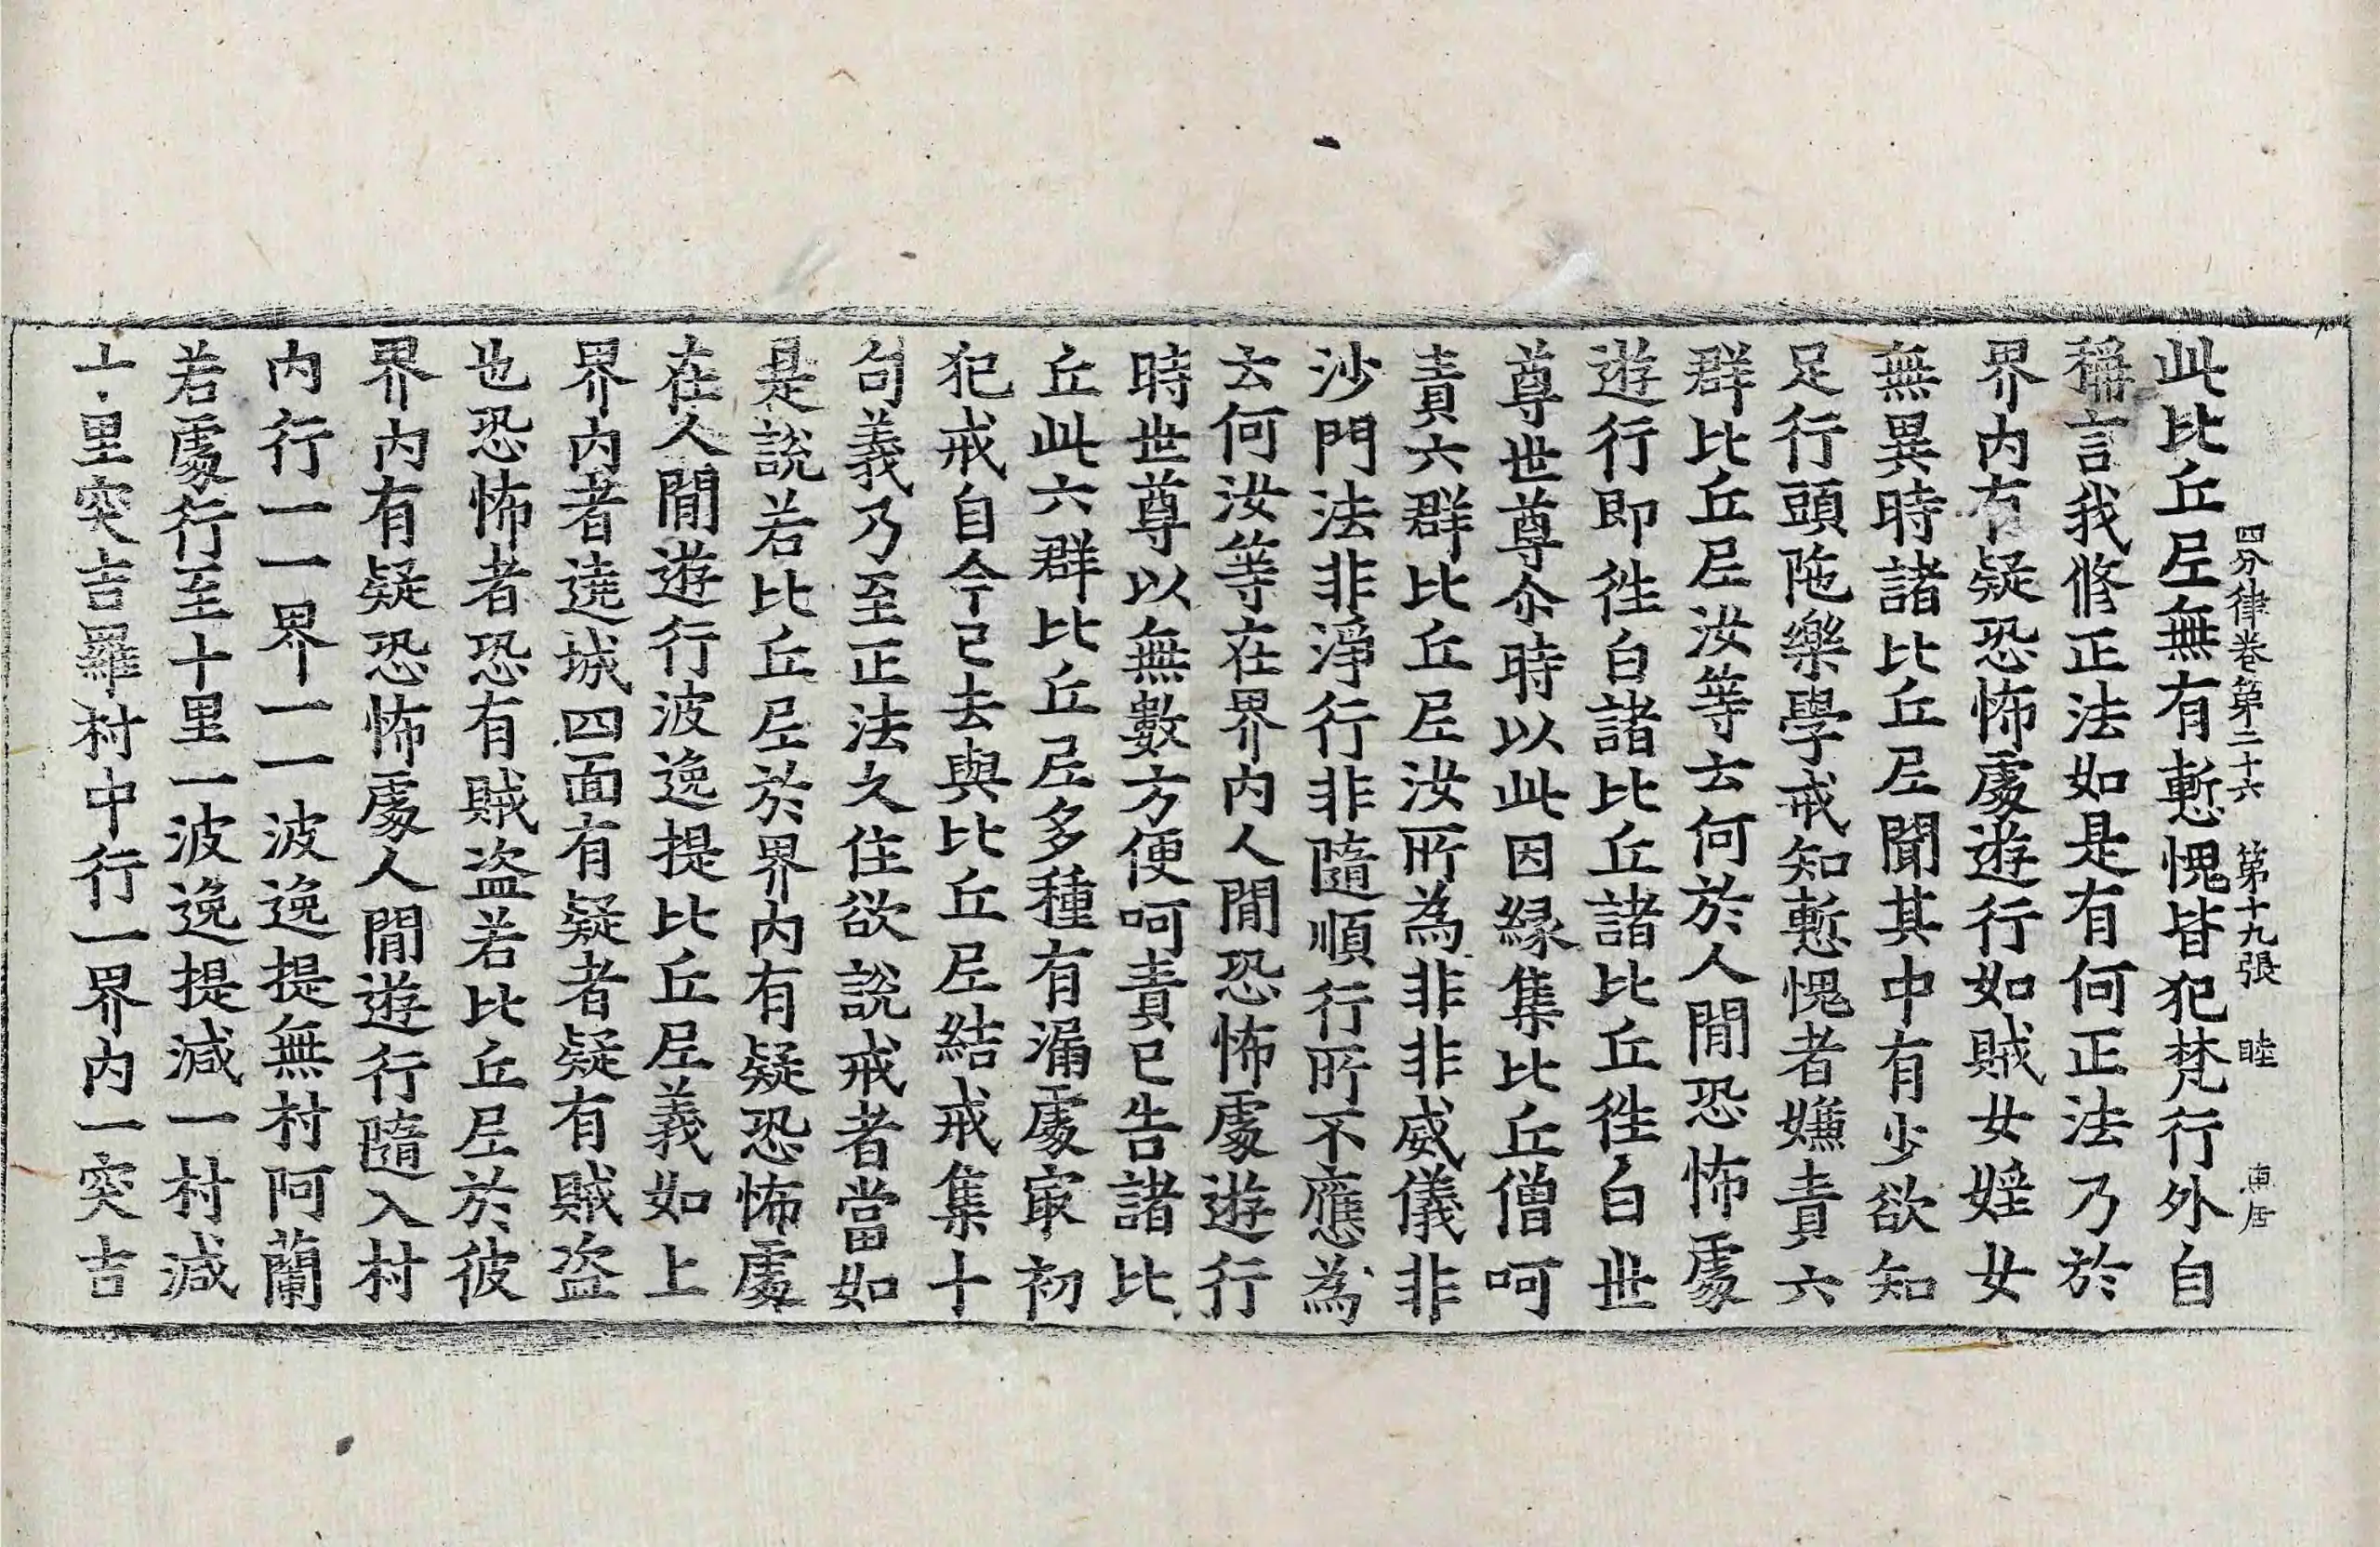 四分律卷第二十六 第十九張 睦
此比丘尼無有慙愧皆犯梵行外自
稱言我修正法如是有何正法乃於
界内有疑恐怖處遊行如賊女婬女
無異時諸比丘尼聞其中有少欲知
足行頭陁樂學戒知慙愧者嫌責六
群比丘尼汝等云何於人閒恐怖處
遊行即徃白諸比丘諸比丘徃白世
尊世尊尒時以此因緣集比丘僧呵
責六群比丘尼汝所為非非威儀非
沙門法非淨行非隨順行所不應為
云何汝等在界内人閒恐怖處遊行
時世尊以無數方便呵責已告諸比
丘此六群比丘尼多種有漏處㝡初
犯戒自今已去與比丘尼結戒集十
句義乃至正法久住欲說戒者當如
是說若比丘尼於界内有疑恐怖處
在人閒遊行波逸提比丘尼義如上
界内者遶城四面有疑者疑有賊盜
也恐怖者恐有賊盜若比丘尼於彼
界内有疑恐怖處人閒遊行隨入村
内行一一界一一波逸提無村阿蘭
若處行至十里一波逸提減一村減
里突吉羅村中行一界内一突吉